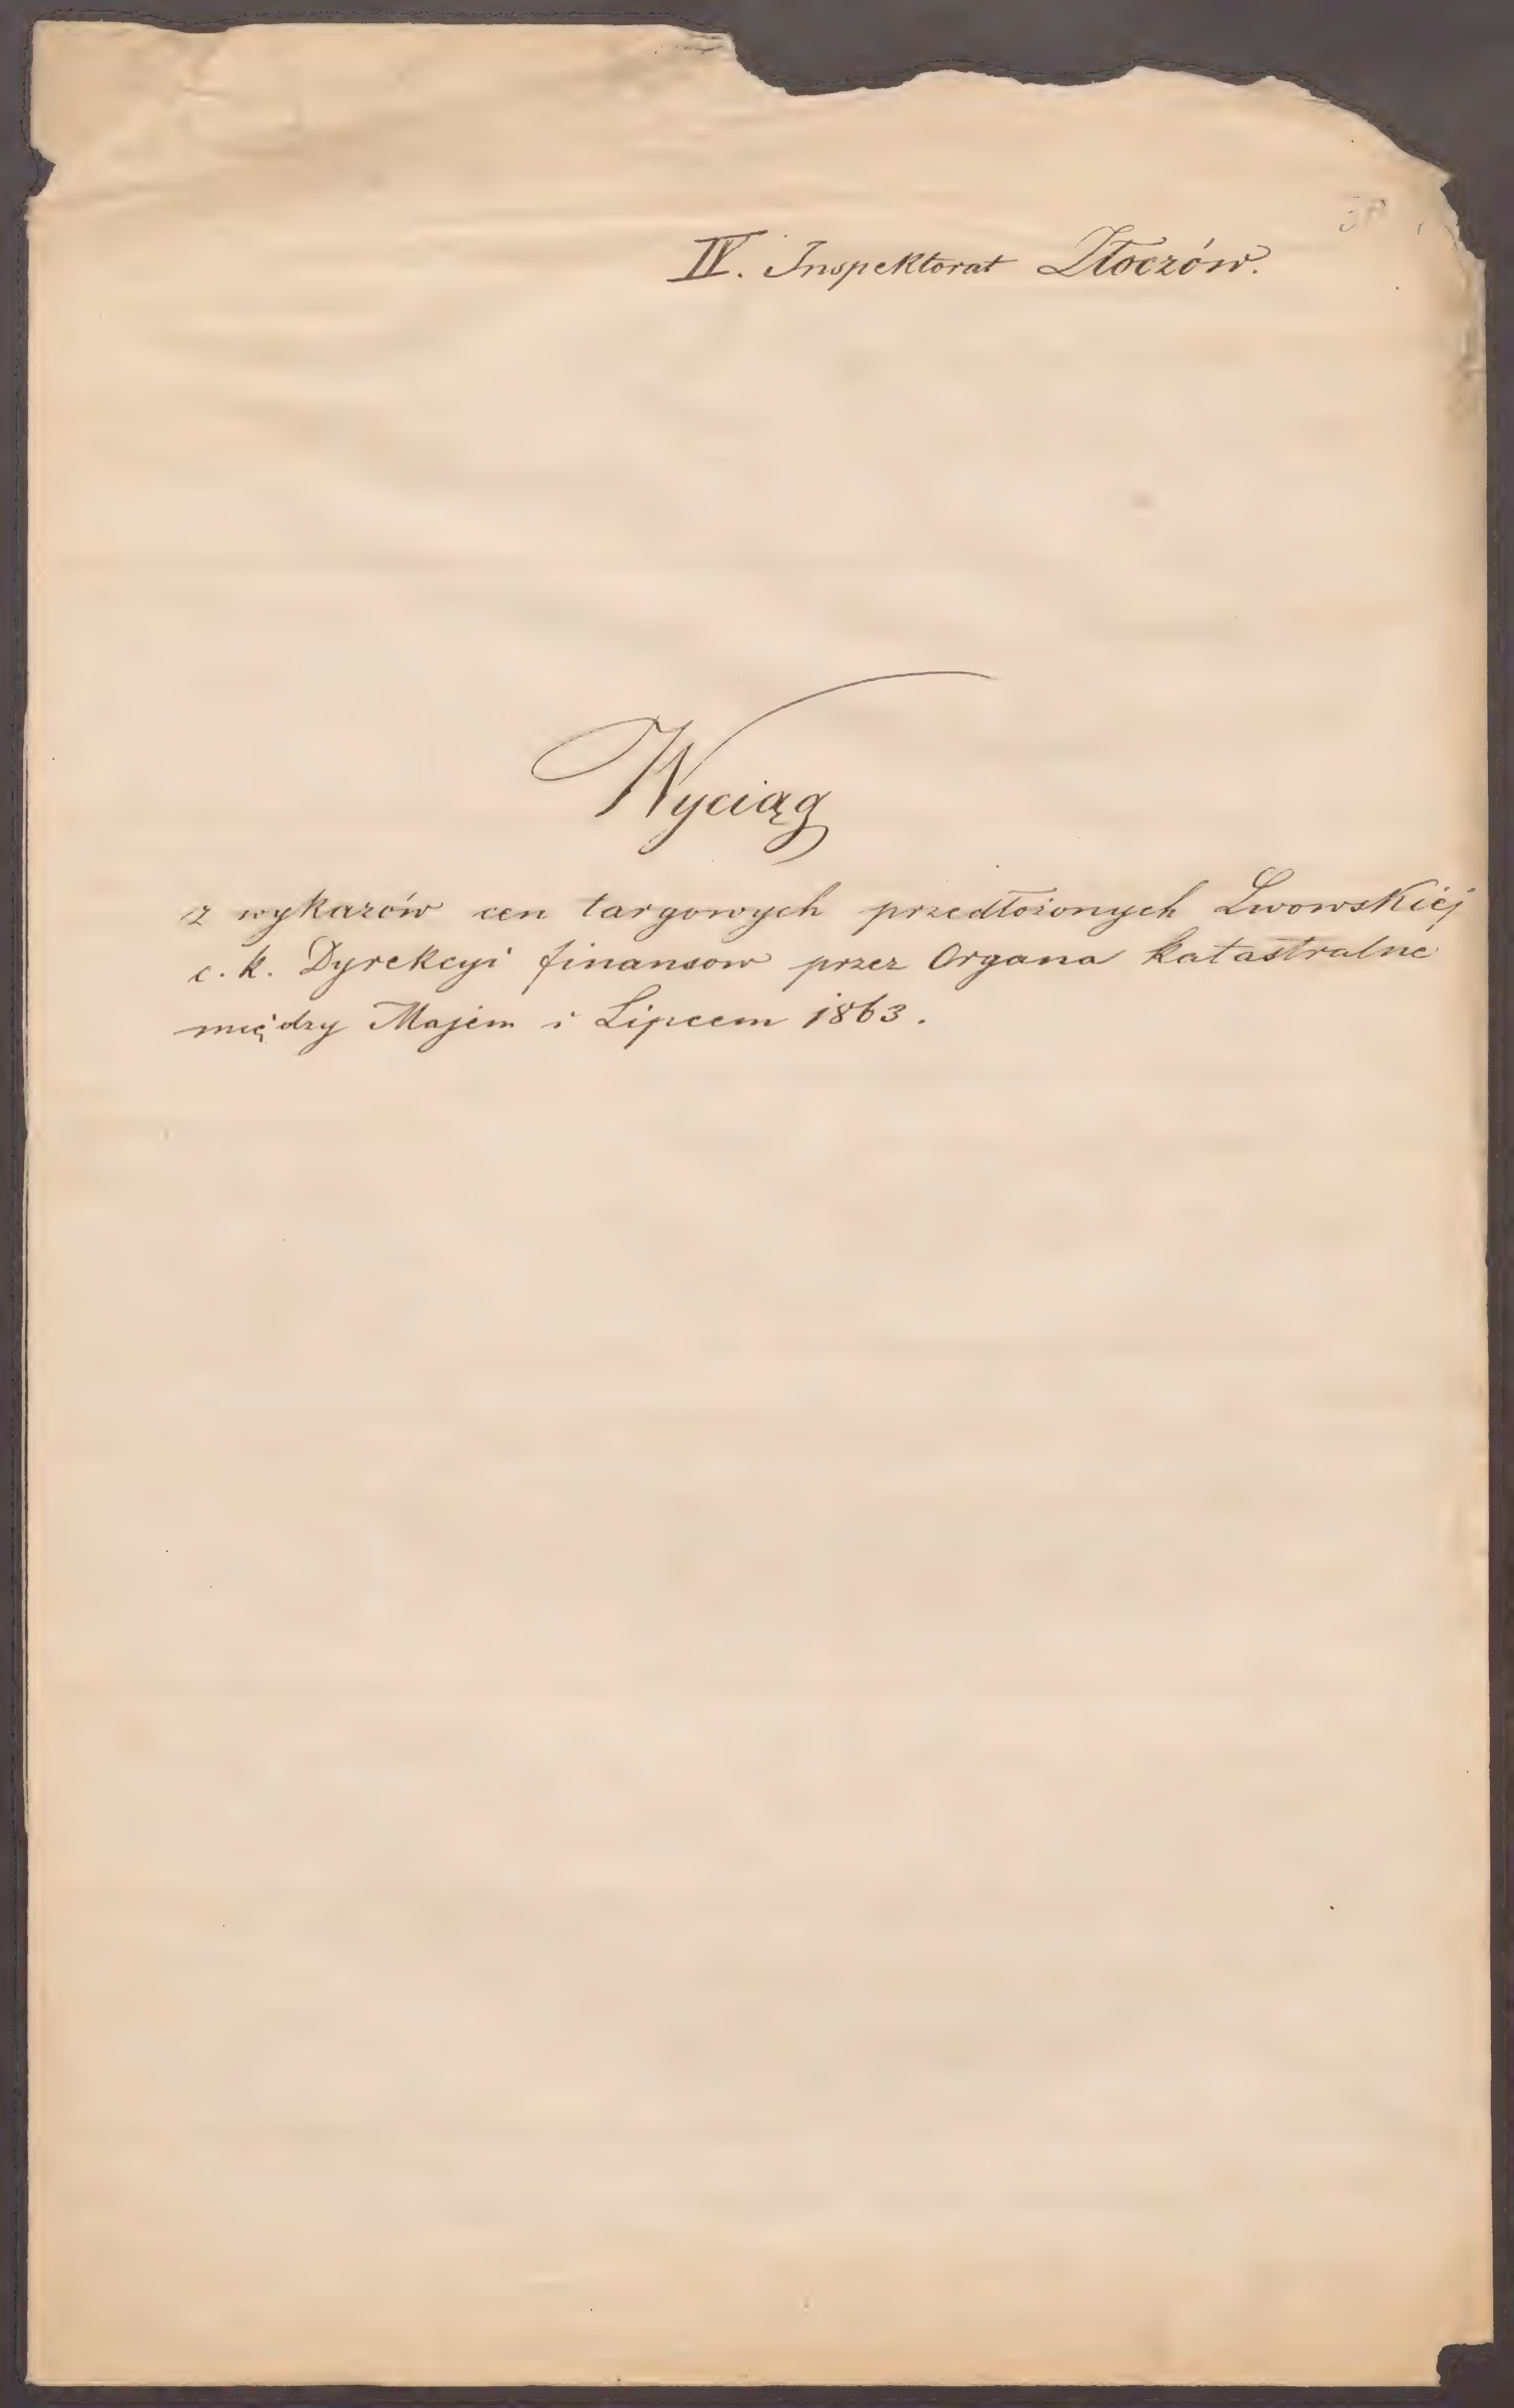 IV. Inspektorat Złoczów.
Wyciąg
z wykazów cen targowych przedłożonych Lwowskiéj
c. k. Dyrekcyi finansow przez Organa katastralne
między Majem i Lipcem 1863.